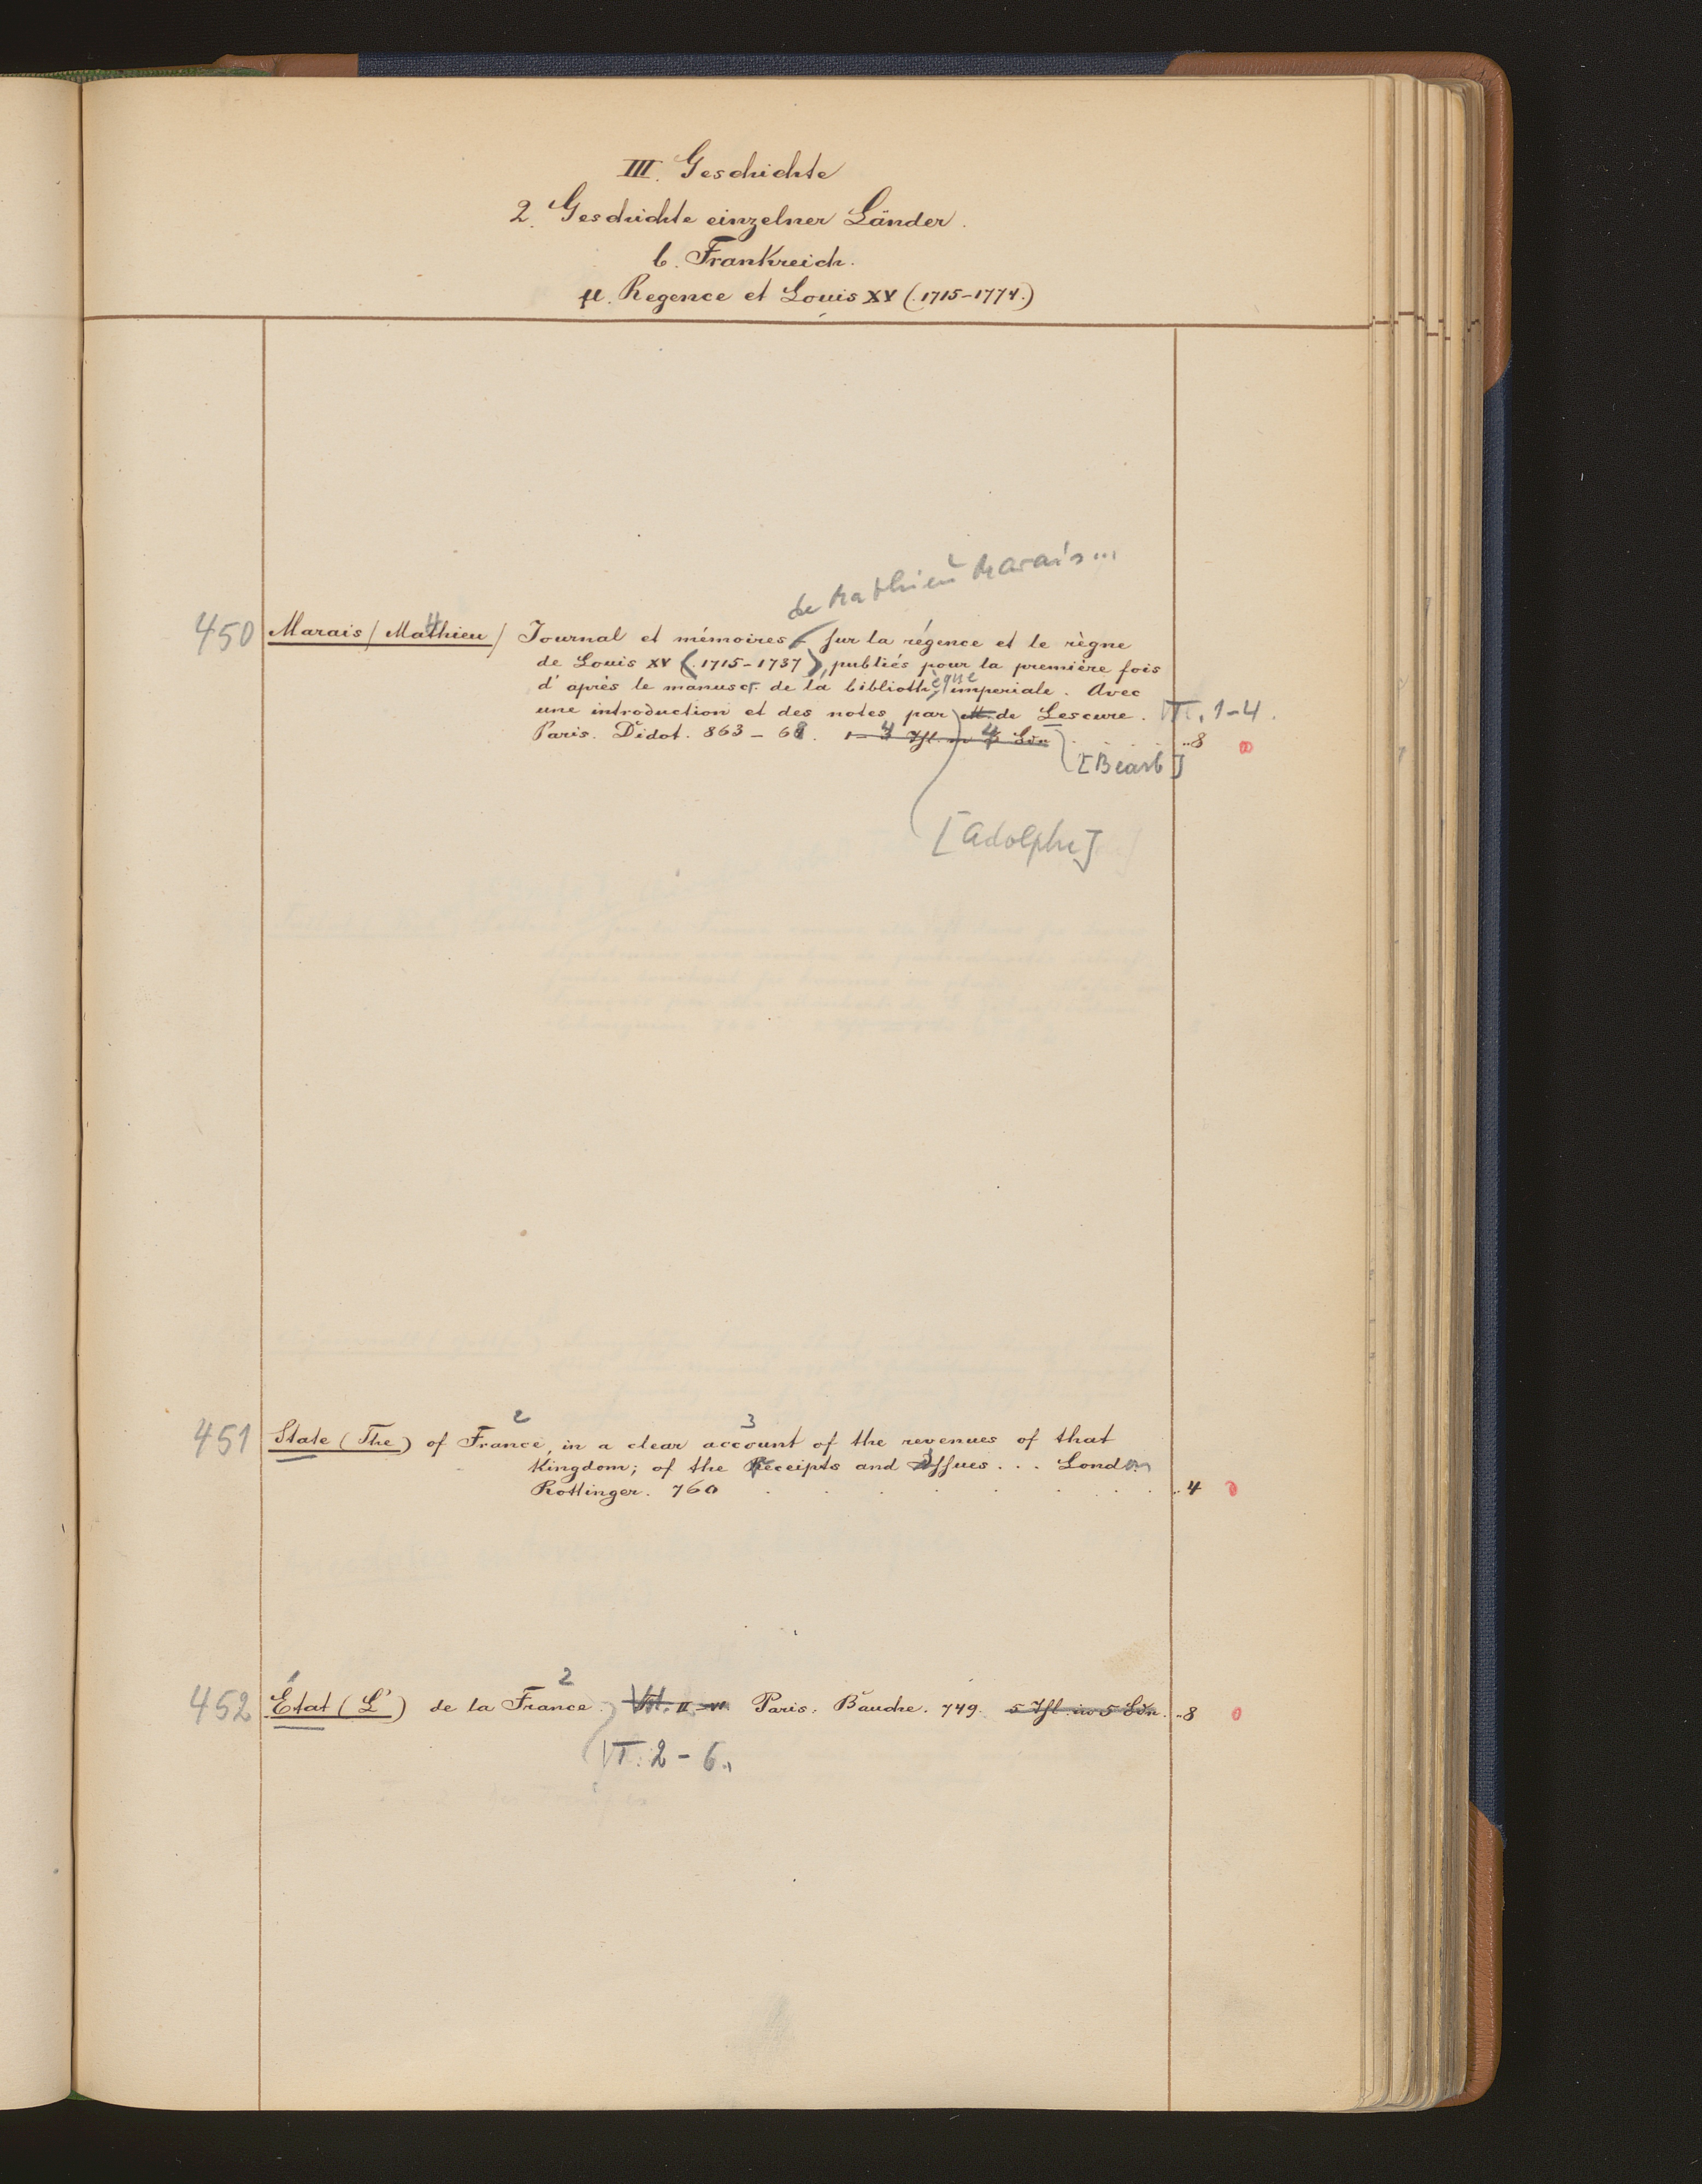 III. Geschichte
2. Geschichte einzelner Länder.
b. Frankreich.
µ. Regence et Louis XV (1715-1774.)
de Mathieu Marais...
450 Marais / Mathieu / Journal et mémoires sur la régence et le règne
de Louis XV (1715-1737), publiés pour la première fois
d'après le manuscr. de la bibliothèque imperiale. Avec
une introduction et des notes par M. de Lescure. T. 1-4.
Paris. Didot. 863-68. 1-4 Thl. in 4 Bdn ..8
[Bearb]
[Adolphe]
2 3
451 State (The) of France, in a clear account of the revenues of that
Kingdom; of the Receipts and Issues... London
Rottinger. 760 . . . . . . ..4
2
452 État (L') de la France. Vol. II-VI Paris. Bauche. 749. 5 Thl. in 5 Bdn. ..8
T. 2-6.